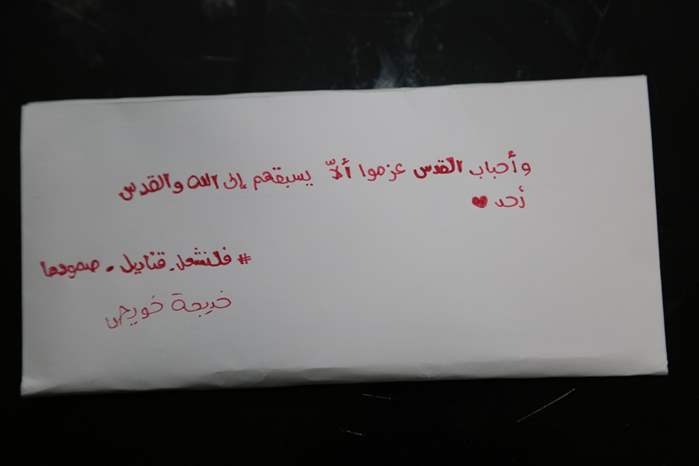 وأحباب القدس عزموا ألاّ يسبقهم إلى الله والقدس
أحد ♥
#فلنشعل_قناديل_صمودها
خديجة خويص